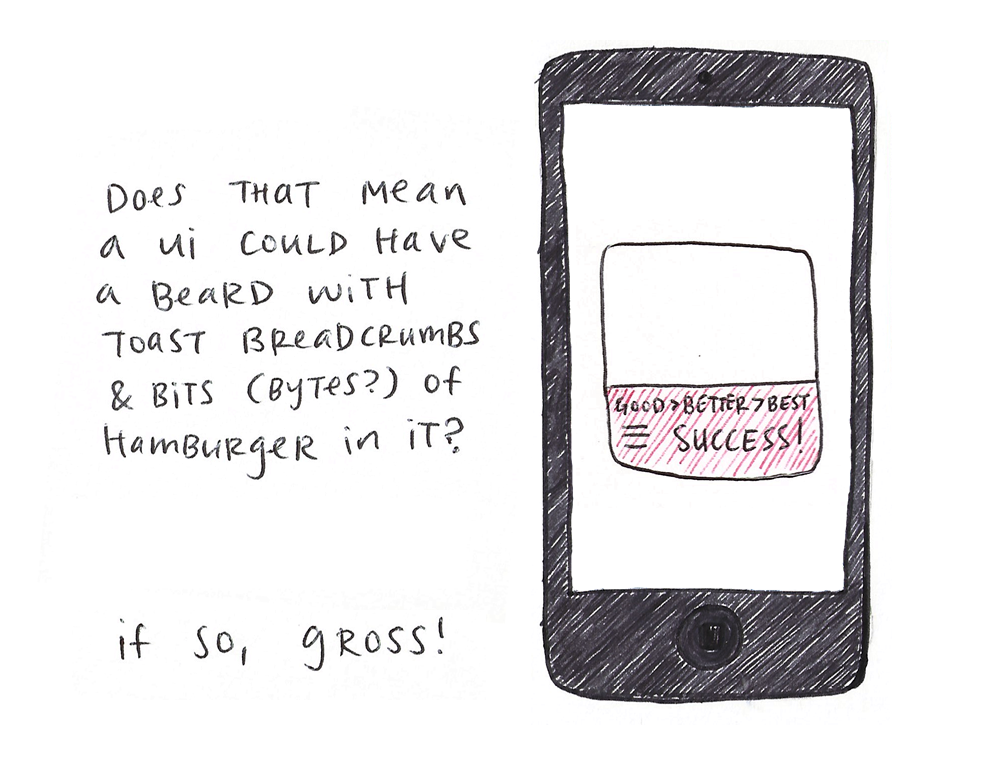 Does THAT mean
a ui COULD Have
a BeaRD WiTH
TOAST BReaDCRumBS
& BiTS (ByTes?) of
HamBuRgeR in iT?
if so, gROSS!
GOOD > BETTER > BEST
≡ SUCCESS!